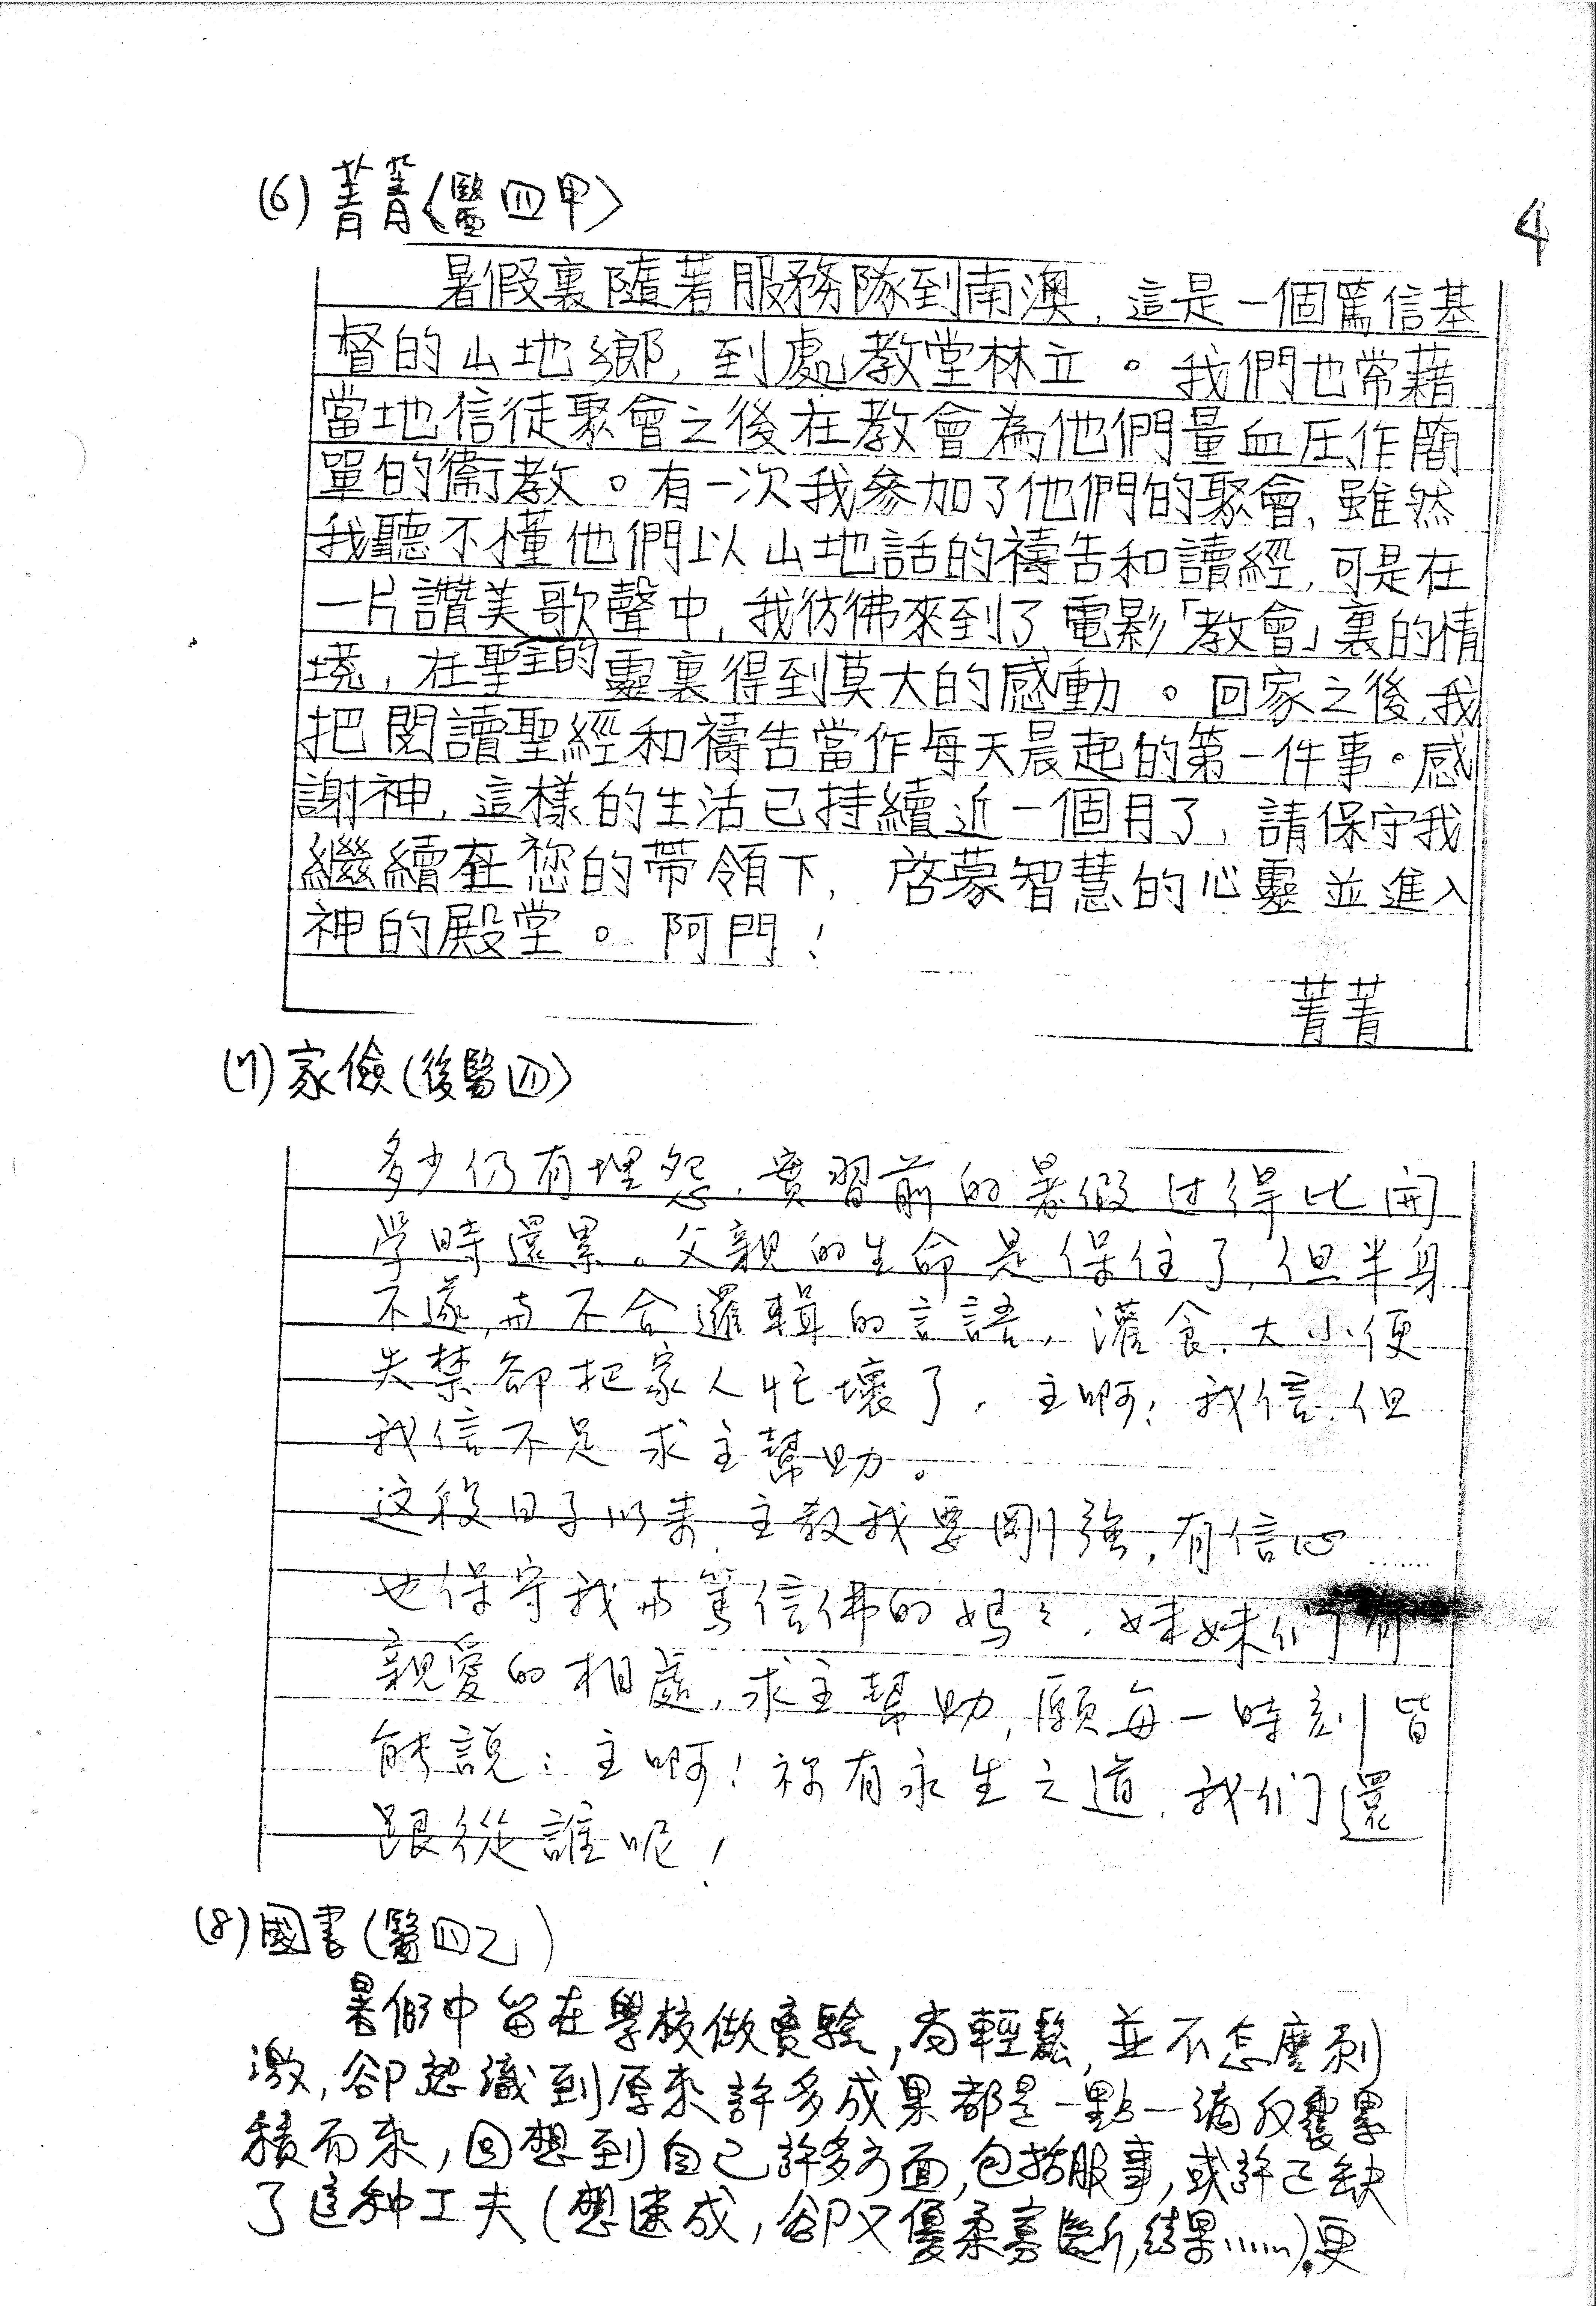 4
(6) 菁菁〈醫四甲〉
暑假裏隨著服務隊到南澳，這是一個篤信基
督的山地鄉，到處教堂林立。我們也常藉
當地信徒聚會之後在教會為他們量血压作簡
單的衞教。有一次我參加了他們的聚會，雖然
我聽不懂他們以山地話的禱告和讀經，可是在
一片讚美歌聲中，我彷彿來到了電影「教會」裏的情
境，在聖主的靈裏得到莫大的感動。回家之後，我
把閱讀聖經和禱告當作每天晨起的第一件事。感
謝神，這樣的生活已持續近一個月了，請保守我
繼續在您的帶領下，啓蒙智慧的心靈並進入
神的殿堂。阿門！
菁菁
(7) 家儉(後醫四〉
多少仍有埋怨，實習前的暑假过得比開
學時還累。父親的生命是保住了，但半身
不遂，与不合邏輯的言語，灌食、大小便
失禁卻把家人忙壞了。主啊！我信，但
我信不足求主幫助。
这段日子以来，主教我要剛強，有信心……
也保守我与篤信佛的媽々，妹妹们有
親愛的相處，求主幫助，願每一時刻皆
能說：主啊！祢有永生之道，我们還
跟從誰呢！
(8) 國書(醫四乙)
暑假中留在學校做實驗，尚輕鬆，並不怎麼刺
激，卻認識到原來許多成果都是一點一滴的累
積而來，回想到自己許多方面，包括服事，或許已缺
了這种工夫(想速成，卻又優柔寡斷，結果……)。更